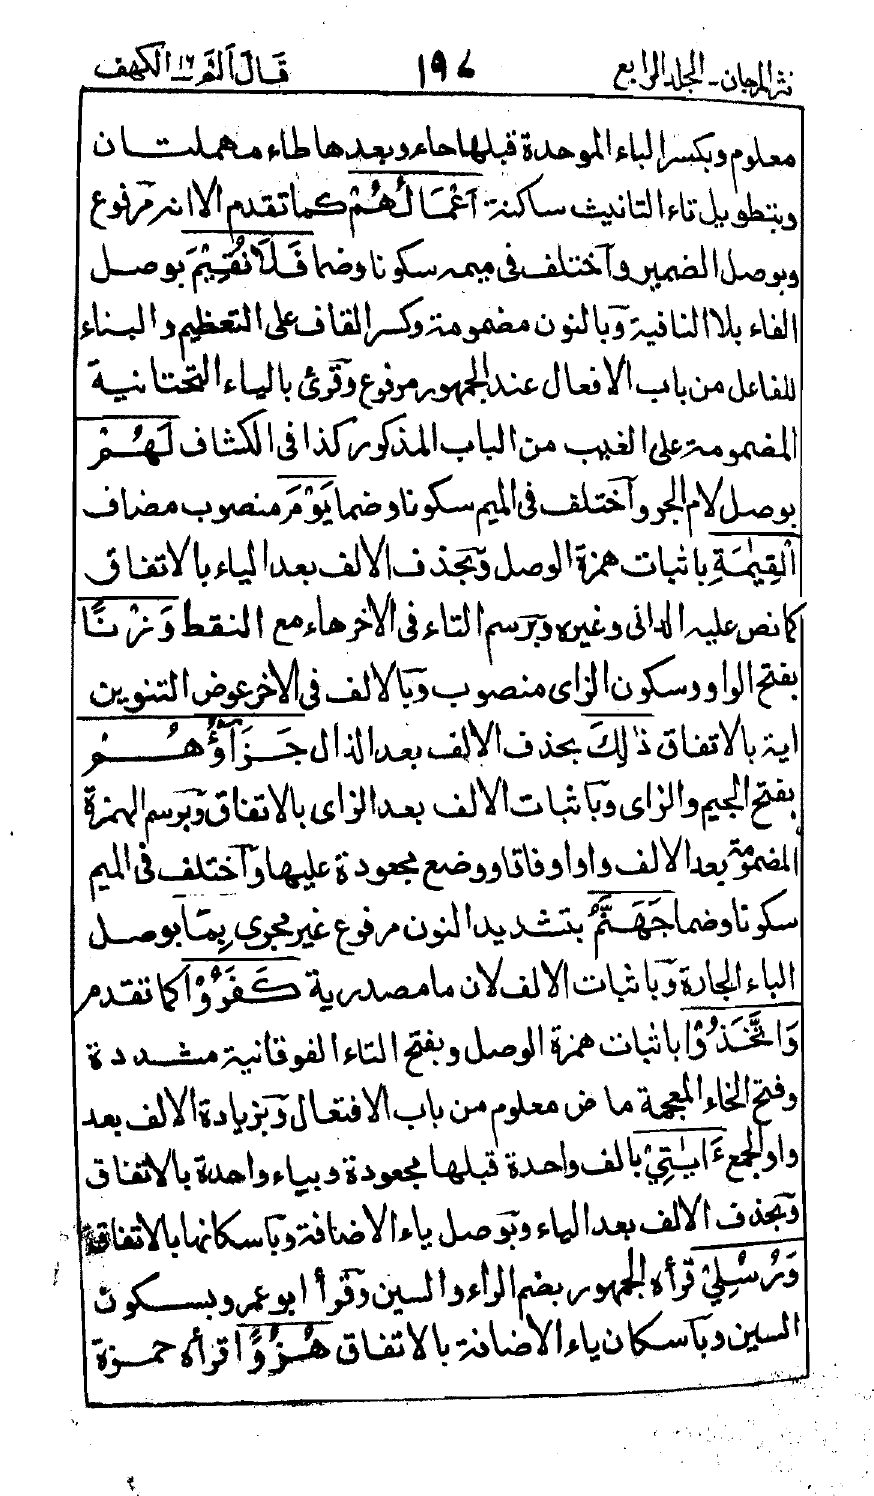 نثر المرجان - الجلد الرابع ١٩٧ قَالَ أَلَمْ ١٦ الكهف
معلوم و بكسر الباء الموحدة قبلها حاء وبعدها طاء مهملتان
وبتطويل تاء التانيث ساكنة أَعْمَالُهُمْ كما تقدم الا انه مرفوع
وبوصل الضمير واختلف فى ميمه سكونا وضما فَلَا نُقِيْمُ بوصل
الفاء بلا النافية وبالنون مضمومة وكسر القاف على التعظيم والبناء
للفاعل من باب الافعال عند الجمهور مرفوع وقرئ بالياء التحتانية
المضمومة على الغيب من الباب المذكور كذا فى الكشاف لَهُمْ
بوصل لام الجر واختلف فى الميم سكونا وضما يَوْمَ منصوب مضاف
الْقِيٰمَةِ باثبات همزة الوصل وبحذف الالف بعد الياء بالاتفاق
كما نص عليه الدانى وغيره وبرسم التاء فى الآخر هاء مع النقط وَزْنًا
بفتح الواو وسكون الزاى منصوب وبالالف فى الآخر عوض التنوين
اية بالاتفاق ذٰلِكَ بحذف الالف بعد الذال جَزَآؤُهُمْ
بفتح الجيم والزاى وباثبات الالف بعد الزاى بالاتفاق وبرسم الهمزة
المضمومة بعد الالف واوا وفاقا ووضع مجعودة عليها واختلف فى الميم
سكونا وضما جَهَنَّمُ بتشديد النون مرفوع غير مجرى بِمَا بوصل
الباء الجارة وباثبات الالف لان ما مصدرية كَفَرُوْا كما تقدم
وَاتَّخَذُوْا باثبات همزة الوصل وبفتح التاء الفوقانية مشددة
وفتح الخاء المعجمة ماض معلوم من باب الافتعال وبزيادة الالف بعد
واو الجمع ءَايٰتِيْ بالف واحدة قبلها مجعودة وبياء واحدة بالاتفاق
وبحذف الالف بعد الياء وبوصل ياء الاضافة وباسكانها بالاتفاق
وَرُسُلِيْ قرأه الجمهور بضم الراء والسين وقرأ ابو عمر و بسكون
السين وباسكان ياء الاضافة بالاتفاق هُزُوًا قرأه حمزة